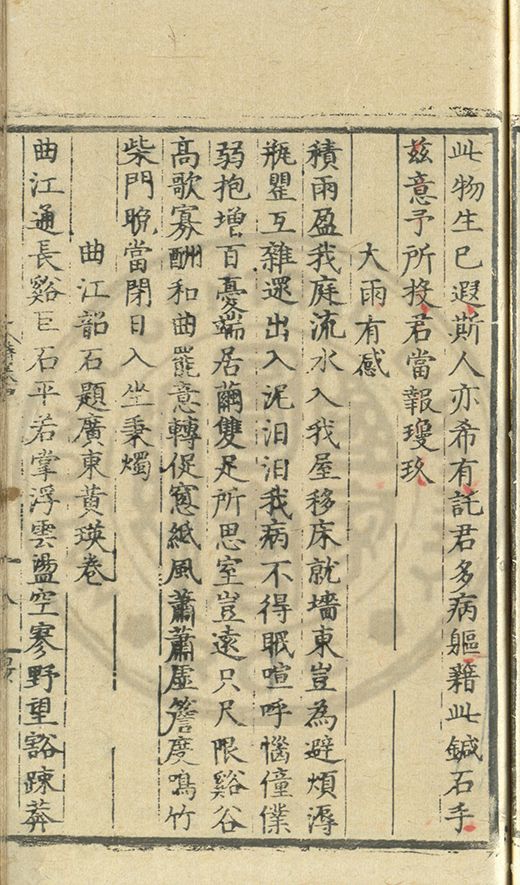 此物生已遐斯人亦希有託君多病軀藉此鍼石手
茲意予所投君當報瓊玖
大雨有感
積雨盈我庭流水入我屋移床就墻東豈為避煩溽
瓶罌互雜還出入泥汩汩我病不得眠喧呼惱僮僕
弱抱增百憂端居繭雙足所思室豈遠只尺限谿谷
高歌寡酬和曲罷意轉促窓紙風蕭蕭虛簷度鳴竹
柴門晚當閉日入坐秉燭
曲江韶石題廣東黃瑛卷
曲江通長谿巨石平若掌浮雲盪空寥野望豁踈莽